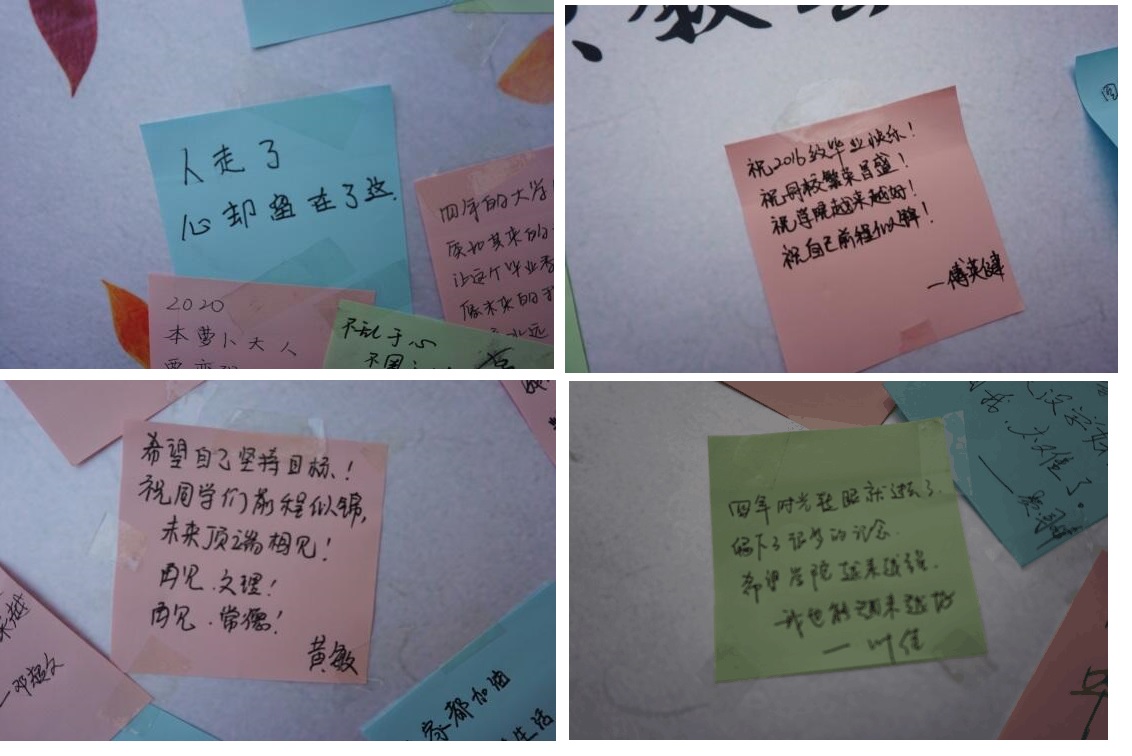 人走了
心却留在了这.
四年的大学
让这个毕业
像未来的
永远
2020
本萝卜大人
要变
不乱于心
不困
祝2016级毕业快乐!
祝母校繁荣昌盛!
祝学院越来越好!
祝自己前程似锦!
—傅英健
希望自己坚持目标.!
祝同学们前程似锦,
未来顶端相见!
再见.文理!
再见.常德!
黄敏
来越
家都加油
生活
四年时光在眼就过去了.
留下了很多的记念.
希望学院越来越强.
我也能越来越好
—叶佳
没